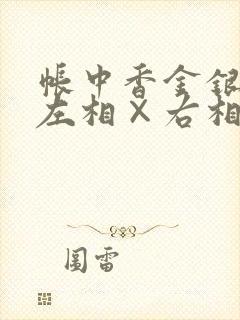 帳中香金銀
左相×右相
圖雷